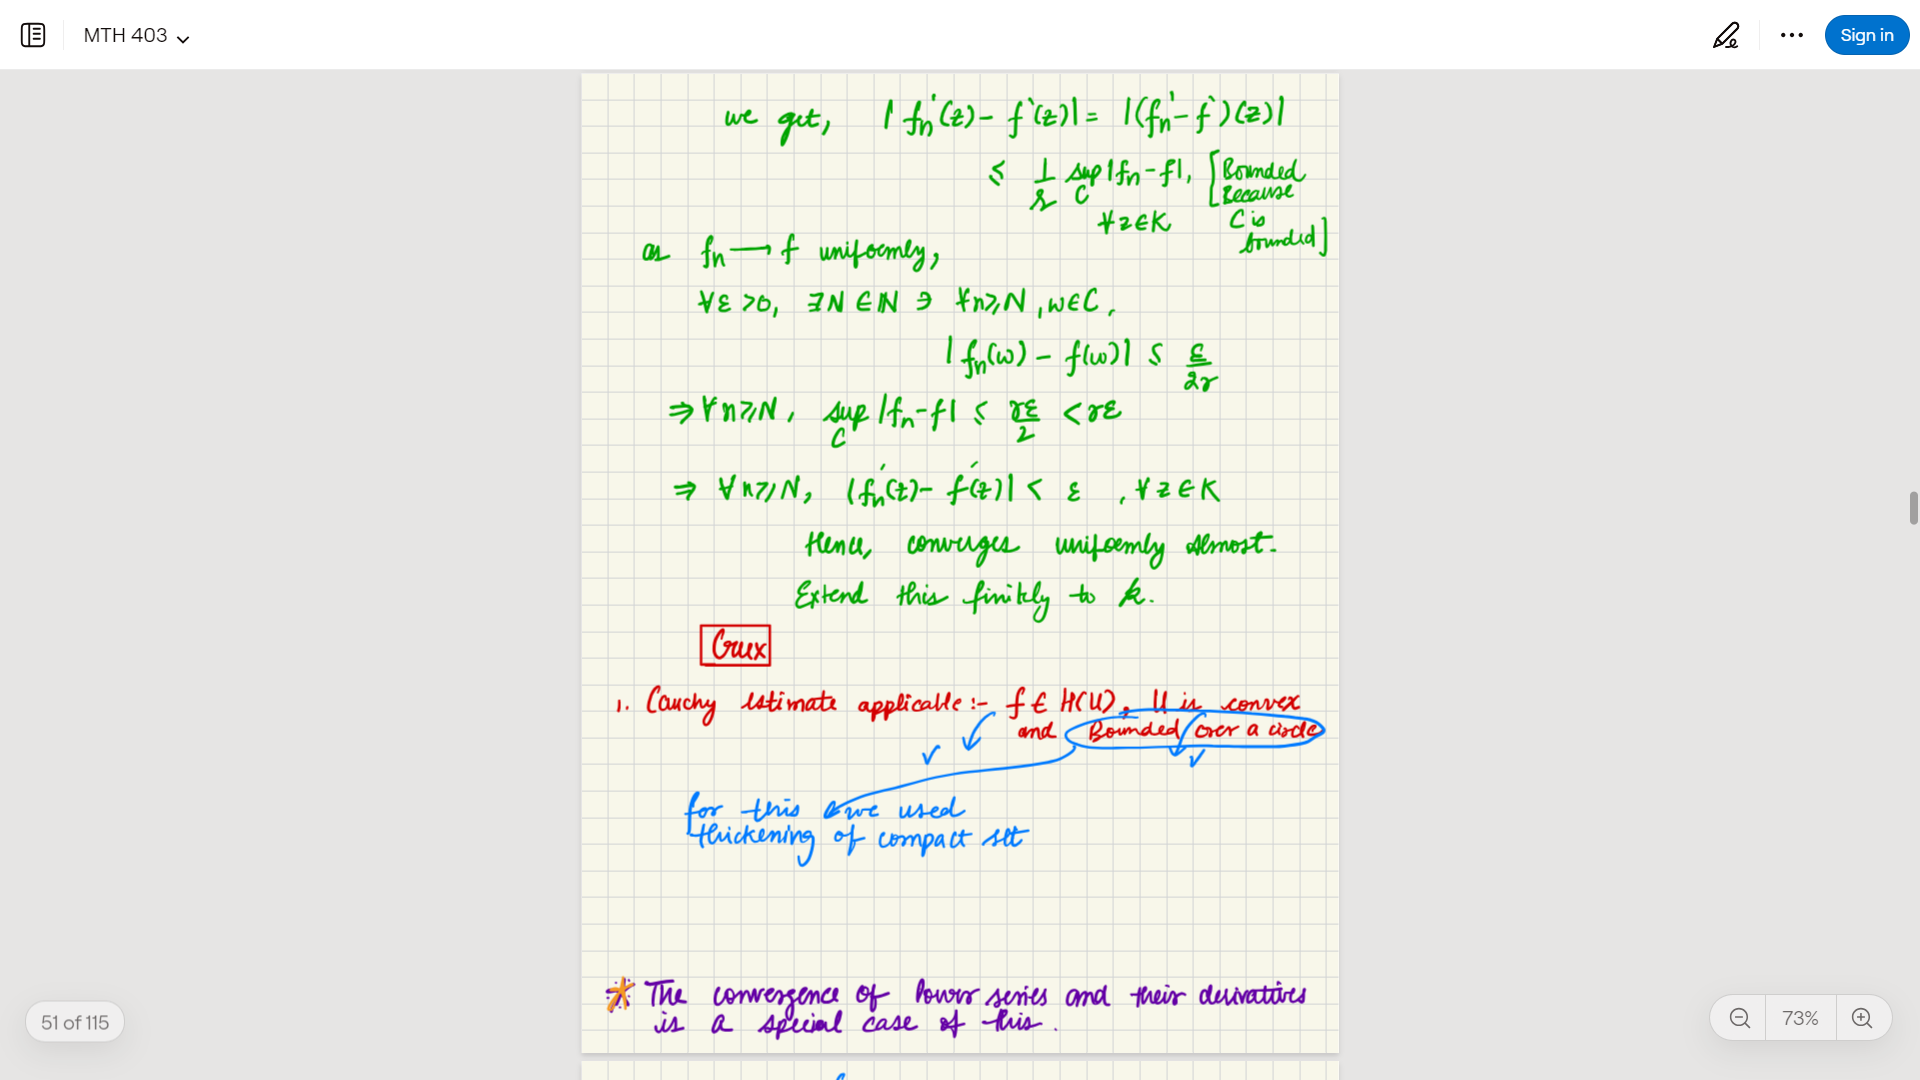 MTH 403
Sign in
we get, | fn'(z) - f'(z)| = |(fn' - f')(z)|
≤ 1/r sup_C |fn - f|, [Bounded
Because
∀ z ∈ K C is
bounded]
as fn → f uniformly,
∀ε >0, ∃N ∈ ℕ ∋ ∀n≥N, w∈C,
| fn(w) - f(w)| ≤ ε/2r
⇒ ∀n≥N, sup_C |fn - f| ≤ rε/2 < rε
⇒ ∀ n≥N, |fn'(z) - f'(z)| < ε , ∀ z ∈ K
Hence, converges uniformly almost.
Extend this finitely to k.
Crux
1. Cauchy estimate applicable :- f ∈ H(U), U is convex
and Bounded over a circle
✓ ✓
for this we used
thickening of compact set
* The convergence of Power series and their derivatives
is a special case of this.
51 of 115
73%